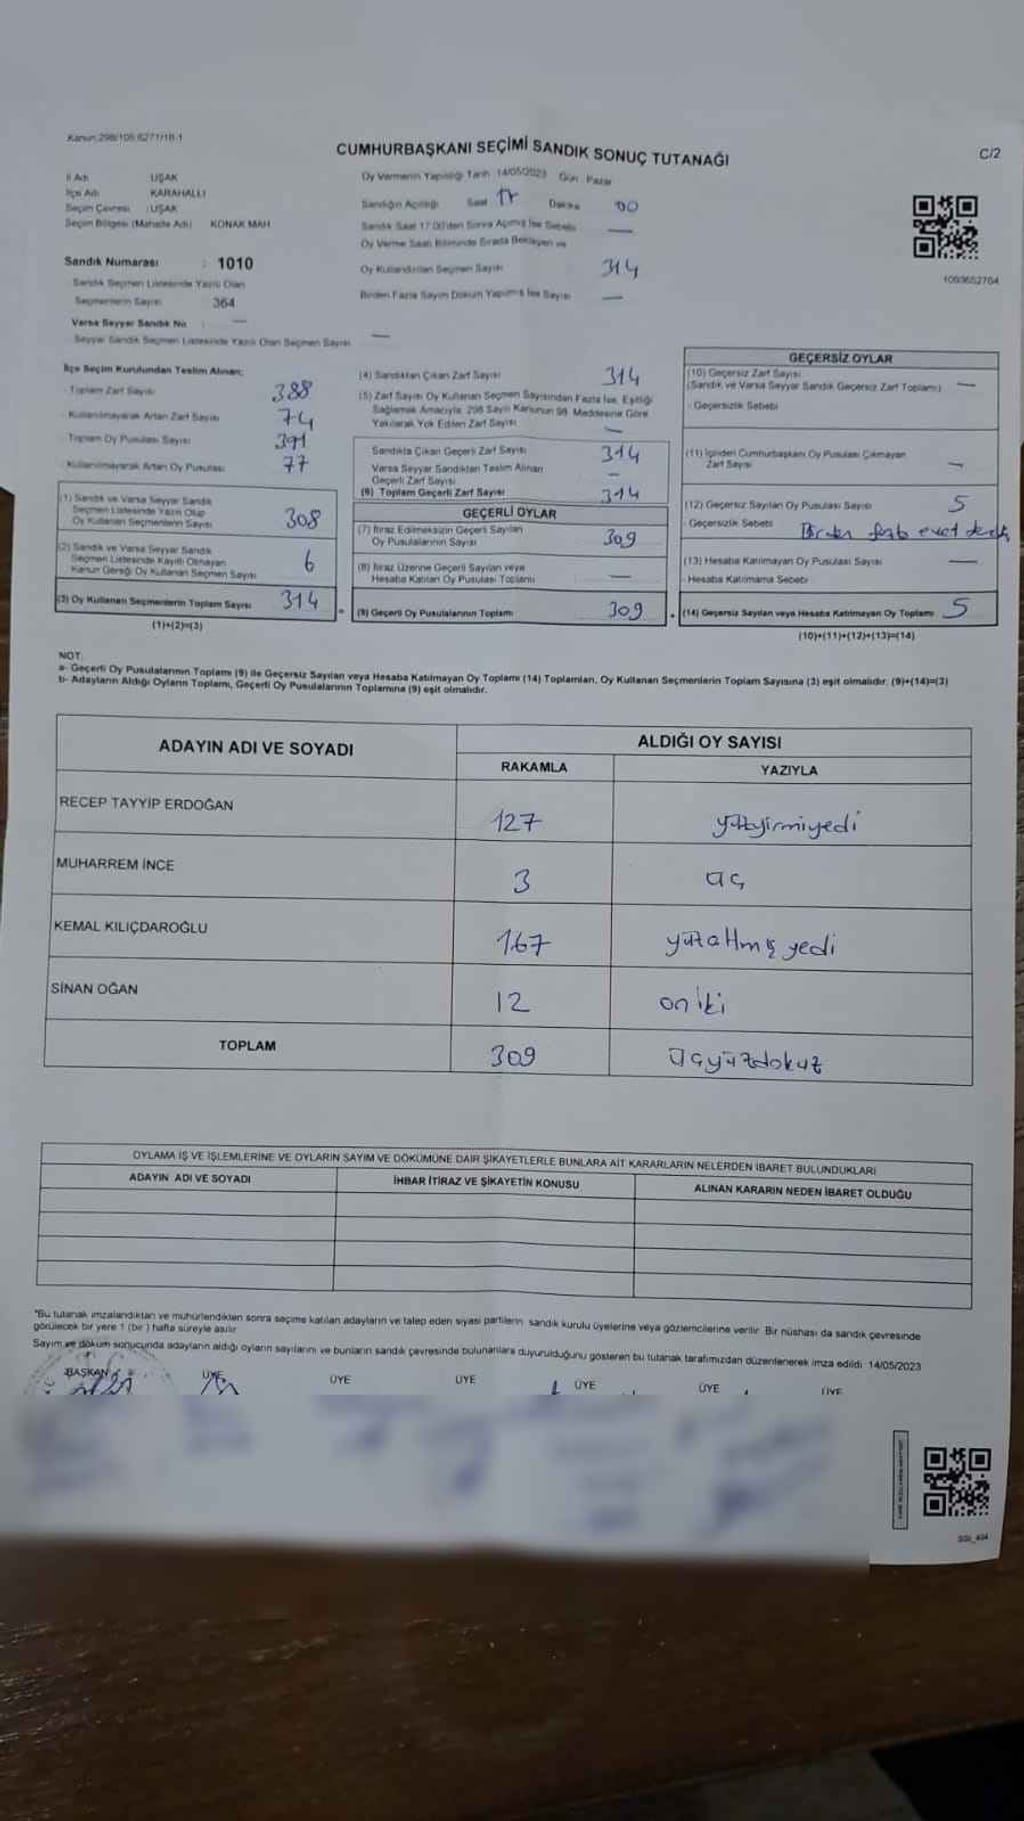 Kanun:298/105,6271/18-1
CUMHURBAŞKANI SEÇİMİ SANDIK SONUÇ TUTANAĞI
C/2
İl Adı : UŞAK
İlçe Adı KARAHALLI
Seçim Çevresi : UŞAK
Seçim Bölgesi (Mahalle Adı) KONAK MAH
Oy Vermenin Yapıldığı Tarih 14/05/2023 Gün Pazar
Sandığın Açıldığı Saat 17 Dakika 00
Sandık Saat 17.00'den Sonra Açılmış İse Sebebi —
Oy Verme Saati Bitiminde Sırada Bekleyen ve
Oy Kullandırılan Seçmen Sayısı 314
Birden Fazla Sayım Döküm Yapılmış İse Sayısı —
1093652704
Sandık Numarası : 1010
Sandık Seçmen Listesinde Yazılı Olan
Seçmenlerin Sayısı 364
Varsa Seyyar Sandık No : —
Seyyar Sandık Seçmen Listesinde Yazılı Olan Seçmen Sayısı —
İlçe Seçim Kurulundan Teslim Alınan;
Toplam Zarf Sayısı 388
Kullanılmayarak Artan Zarf Sayısı 74
Toplam Oy Pusulası Sayısı 391
Kullanılmayarak Artan Oy Pusulası 77
(1) Sandık ve Varsa Seyyar Sandık
Seçmen Listesinde Yazılı Olup
Oy Kullanan Seçmenlerin Sayısı 308
(2) Sandık ve Varsa Seyyar Sandık
Seçmen Listesinde Kayıtlı Olmayan
Kanun Gereği Oy Kullanan Seçmen Sayısı 6
(3) Oy Kullanan Seçmenlerin Toplam Sayısı 314
(1)+(2)=(3)
(4) Sandıktan Çıkan Zarf Sayısı 314
(5) Zarf Sayısı Oy Kullanan Seçmen Sayısından Fazla İse, Eşitliği
Sağlamak Amacıyla, 298 Sayılı Kanunun 98. Maddesine Göre
Yakılarak Yok Edilen Zarf Sayısı —
Sandıkta Çıkan Geçerli Zarf Sayısı 314
Varsa Seyyar Sandıktan Teslim Alınan
Geçerli Zarf Sayısı —
(6) Toplam Geçerli Zarf Sayısı 314
GEÇERLİ OYLAR
(7) İtiraz Edilmeksizin Geçerli Sayılan
Oy Pusulalarının Sayısı 309
(8) İtiraz Üzerine Geçerli Sayılan veya
Hesaba Katılan Oy Pusulası Toplamı —
(9) Geçerli Oy Pusulalarının Toplamı 309
GEÇERSİZ OYLAR
(10) Geçersiz Zarf Sayısı
(Sandık ve Varsa Seyyar Sandık Geçersiz Zarf Toplamı) —
Geçersizlik Sebebi
(11) İçinden Cumhurbaşkanı Oy Pusulası Çıkmayan
Zarf Sayısı —
(12) Geçersiz Sayılan Oy Pusulası Sayısı 5
Geçersizlik Sebebi Birden fazla evet
(13) Hesaba Katılmayan Oy Pusulası Sayısı —
Hesaba Katılmama Sebebi
(14) Geçersiz Sayılan veya Hesaba Katılmayan Oy Toplamı 5
(10)+(11)+(12)+(13)=(14)
NOT:
a- Geçerli Oy Pusulalarının Toplamı (9) ile Geçersiz Sayılan veya Hesaba Katılmayan Oy Toplamı (14) Toplamları, Oy Kullanan Seçmenlerin Toplam Sayısına (3) eşit olmalıdır. (9)+(14)=(3)
b- Adayların Aldığı Oyların Toplamı, Geçerli Oy Pusulalarının Toplamına (9) eşit olmalıdır.
ADAYIN ADI VE SOYADI
ALDIĞI OY SAYISI
RAKAMLA YAZIYLA
RECEP TAYYİP ERDOĞAN 127 yüzyirmiyedi
MUHARREM İNCE 3 üç
KEMAL KILIÇDAROĞLU 167 yüzaltmış yedi
SİNAN OĞAN 12 on iki
TOPLAM 309 üçyüzdokuz
OYLAMA İŞ VE İŞLEMLERİNE VE OYLARIN SAYIM VE DÖKÜMÜNE DAİR ŞİKAYETLERLE BUNLARA AİT KARARLARIN NELERDEN İBARET BULUNDUKLARI
ADAYIN ADI VE SOYADI İHBAR İTİRAZ VE ŞİKAYETİN KONUSU ALINAN KARARIN NEDEN İBARET OLDUĞU
"Bu tutanak imzalandıktan ve mühürlendikten sonra seçime katılan adayların ve talep eden siyasi partilerin sandık kurulu üyelerine veya gözlemcilerine verilir. Bir nüshası da sandık çevresinde
görülecek bir yere 1 (bir) hafta süreyle asılır
Sayım ve döküm sonucunda adayların aldığı oyların sayılarını ve bunların sandık çevresinde bulunanlara duyurulduğunu gösteren bu tutanak tarafımızdan düzenlenerek imza edildi. 14/05/2023
BAŞKAN ÜYE ÜYE ÜYE ÜYE ÜYE ÜYE